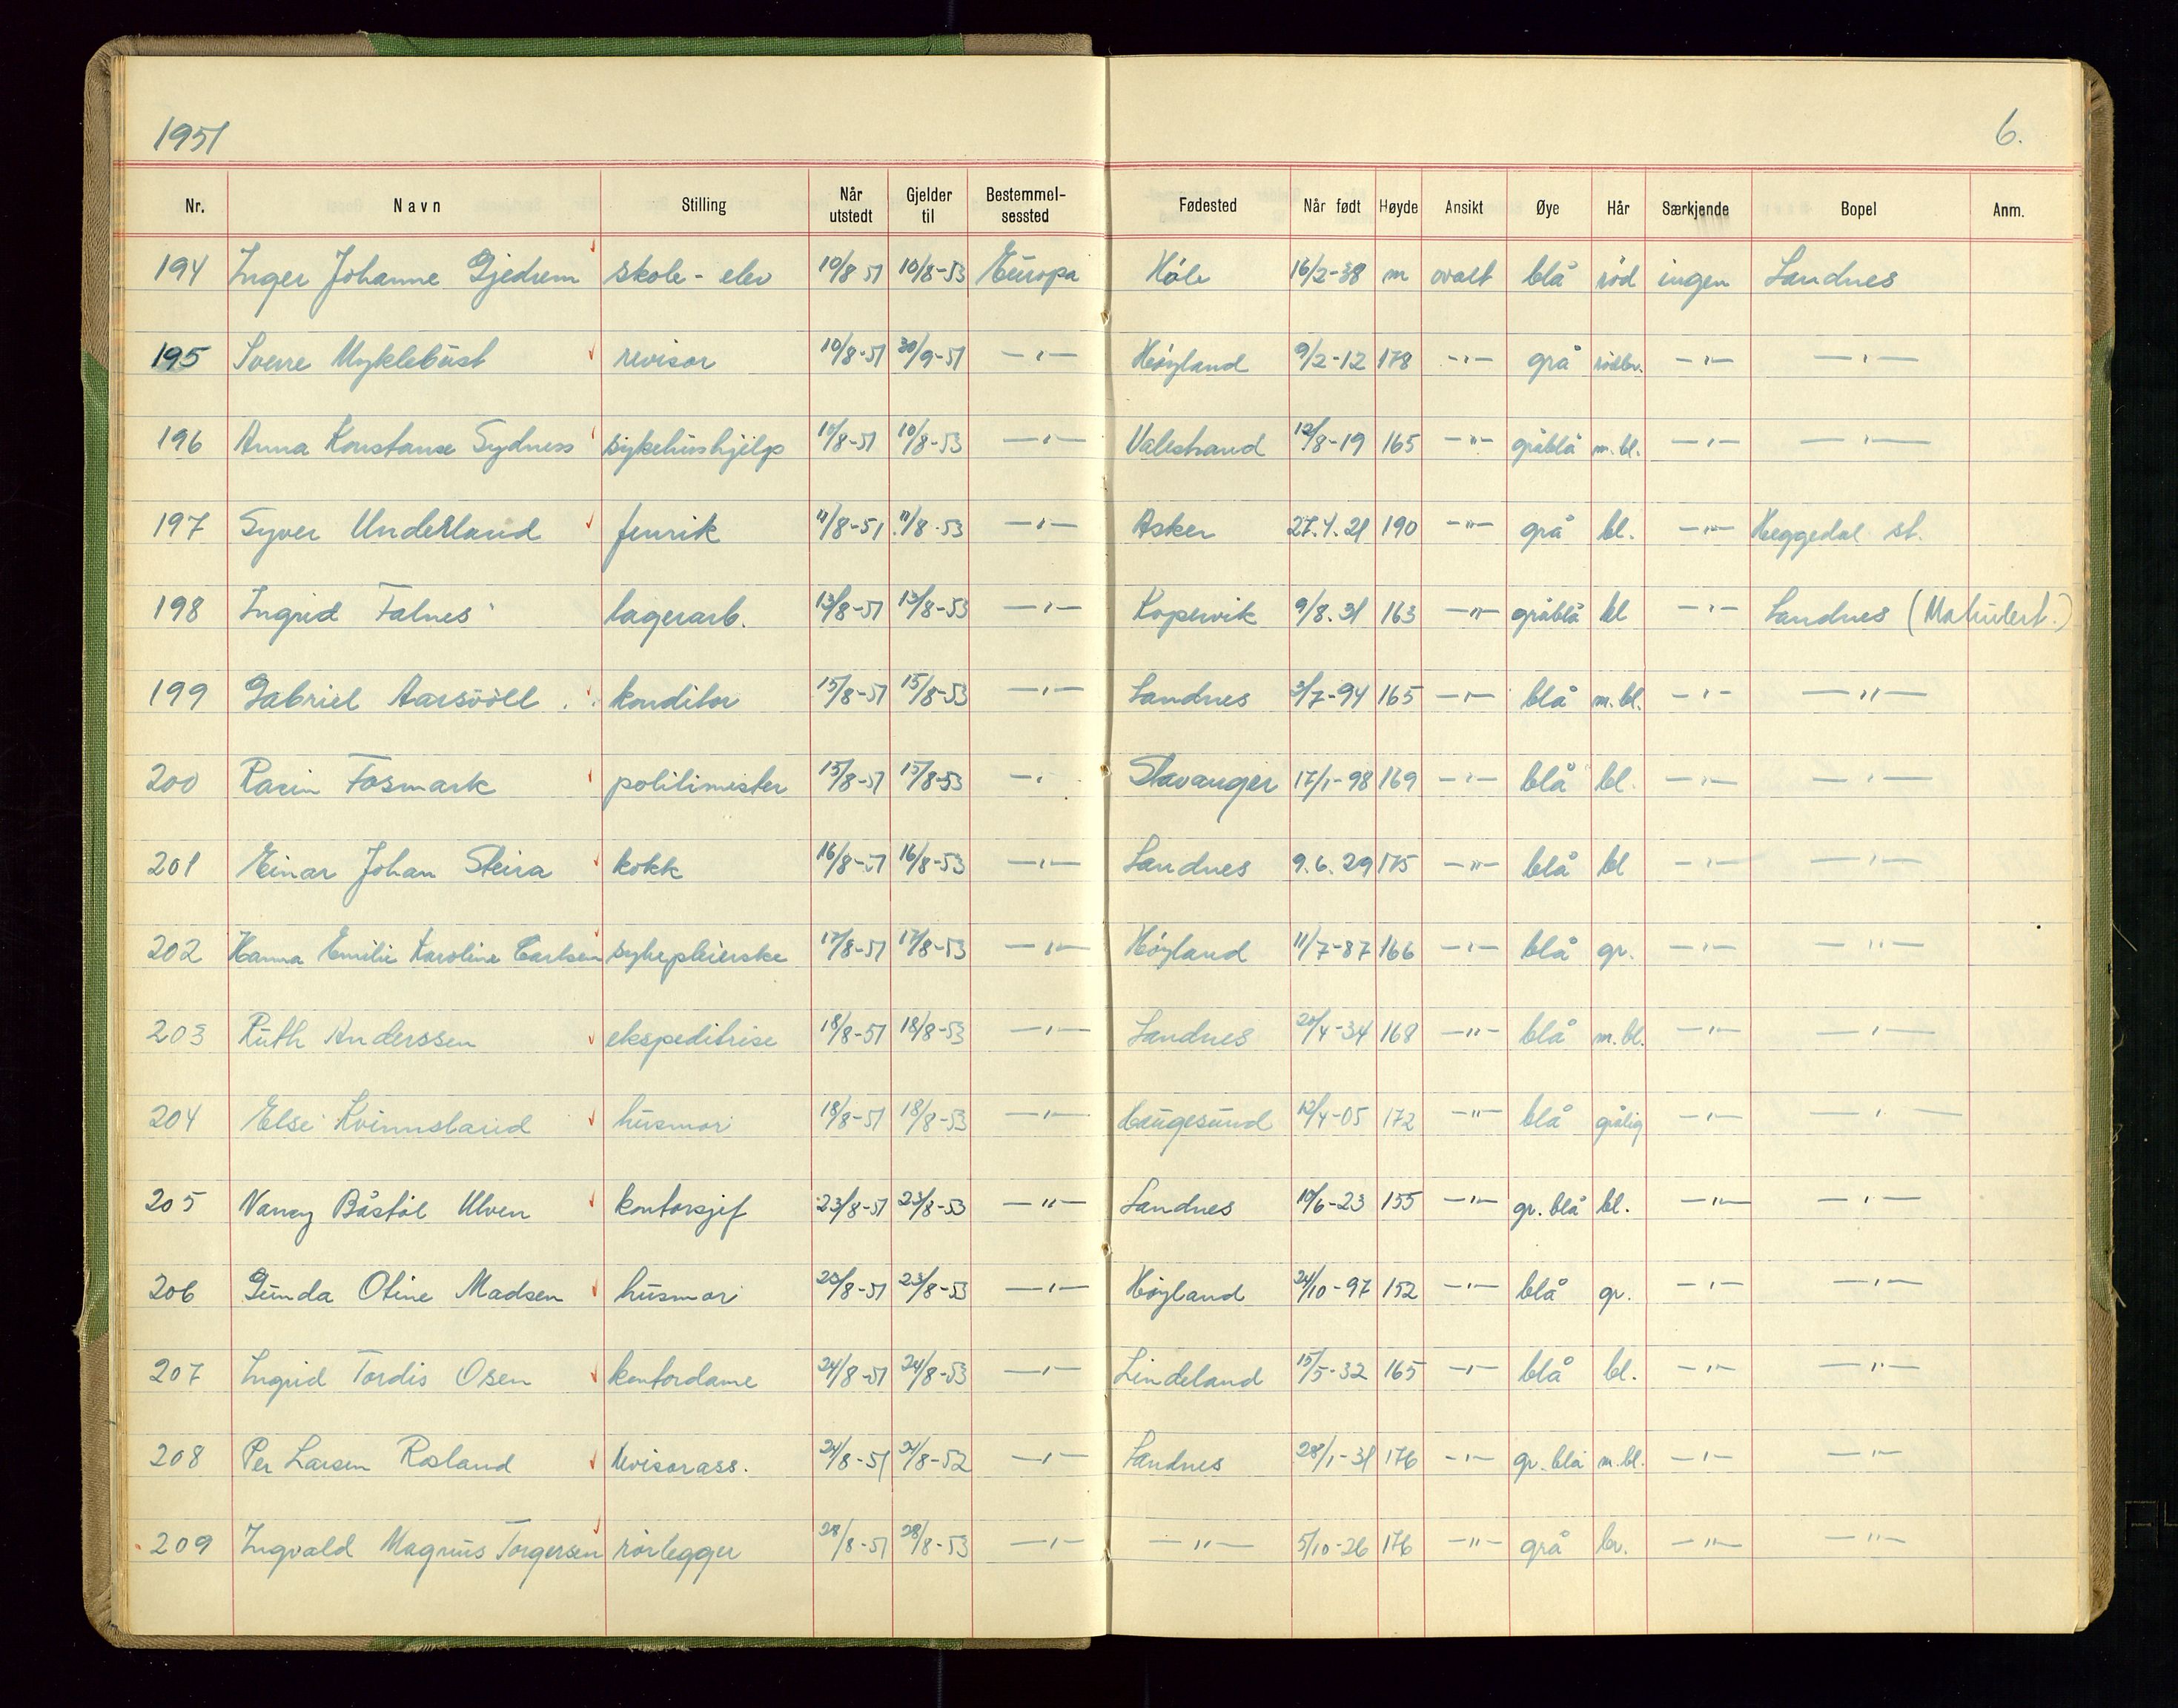 1951
6.
Nr. Navn Stilling Når utstedt Gjelder til Bestemmelsessted Fødested Når født Høyde Ansikt Øye Hår Særkjende Bopel Anm.
194 Inger Johanne Gjedrem skole-elev 10/8 51 10/8-53 Europa Høle 16/2-38 m ovalt blå rød ingen Sandnes
195 Sverre Myklebust revisor 10/8-51 30/9-51 —"— Høyland 9/2-12 178 —"— grå rødbr. —"— —"—
196 Anna Konstanse Sydness sykehushjelp 10/8-51 10/8-53 —"— Valestrand 12/8-19 165 —"— gråblå m.bl. —"— —"—
197 Syver Underland fenrik 11/8-51 11/8-53 —"— Asker 27.4.21 190 —"— grå bl. —"— Heggedal st.
198 Ingrid Falnes lagerarb. 13/8-51 13/8-53 —"— Kopervik 9/8.31 163 —"— gråblå bl —"— Sandnes
199 Gabriel Aarsvoll konditor 15/8-51 15/8-53 —"— Sandnes 3/7-94 165 —"— blå m.bl. —"— —"—
200 Fosmark politimester 15/8-51 15/8-53 —" Stavanger 17/1-98 169 —"— blå bl. —"— —"—
201 Einar Johan Steira kokk 16/8-51 16/8-53 —"— Sandnes 9.6.29 175 —"— blå bl —"— —"—
202 Hanna Emilie Karoline Carlsen sykepleierske 17/8-51 17/8-53 —"— Høyland 11/7-87 166 —"— blå gr. —"— —"—
203 Ruth Anderssen ekspeditrise 18/8-51 18/8-53 —"— Sandnes 20/4-34 168 —"— blå m.bl. —"— —"—
204 Else Kvinnsland husmor 18/8-51 18/8-53 —"— Haugesund 12/4-05 172 —"— blå grålig —"— —"—
205 Nancy Båstøl Ulven kontorsjef 23/8-51 23/8-53 —"— Sandnes 19/6-23 155 —"— gr.blå bl. —"— —"—
206 Gunda Otine Madsen husmor 23/8-51 23/8-53 —"— Høyland 24/10-97 152 —"— blå gr. —"— —"—
207 Ingrid Tordis Osen kontordame 24/8-51 24/8-53 —"— Lindeland 15/5-32 165 —"— blå bl. —"— —"—
208 Per Larsen Rosland revisorass. 24/8-51 24/8-52 —"— Sandnes 28/1-31 176 —"— gr.blå m.bl. —"— —"—
209 Ingvald Magnus Torgersen rørlegger 28/8-51 28/8-53 —"— —"— 5/10-26 176 —"— grå br. —"— —"—